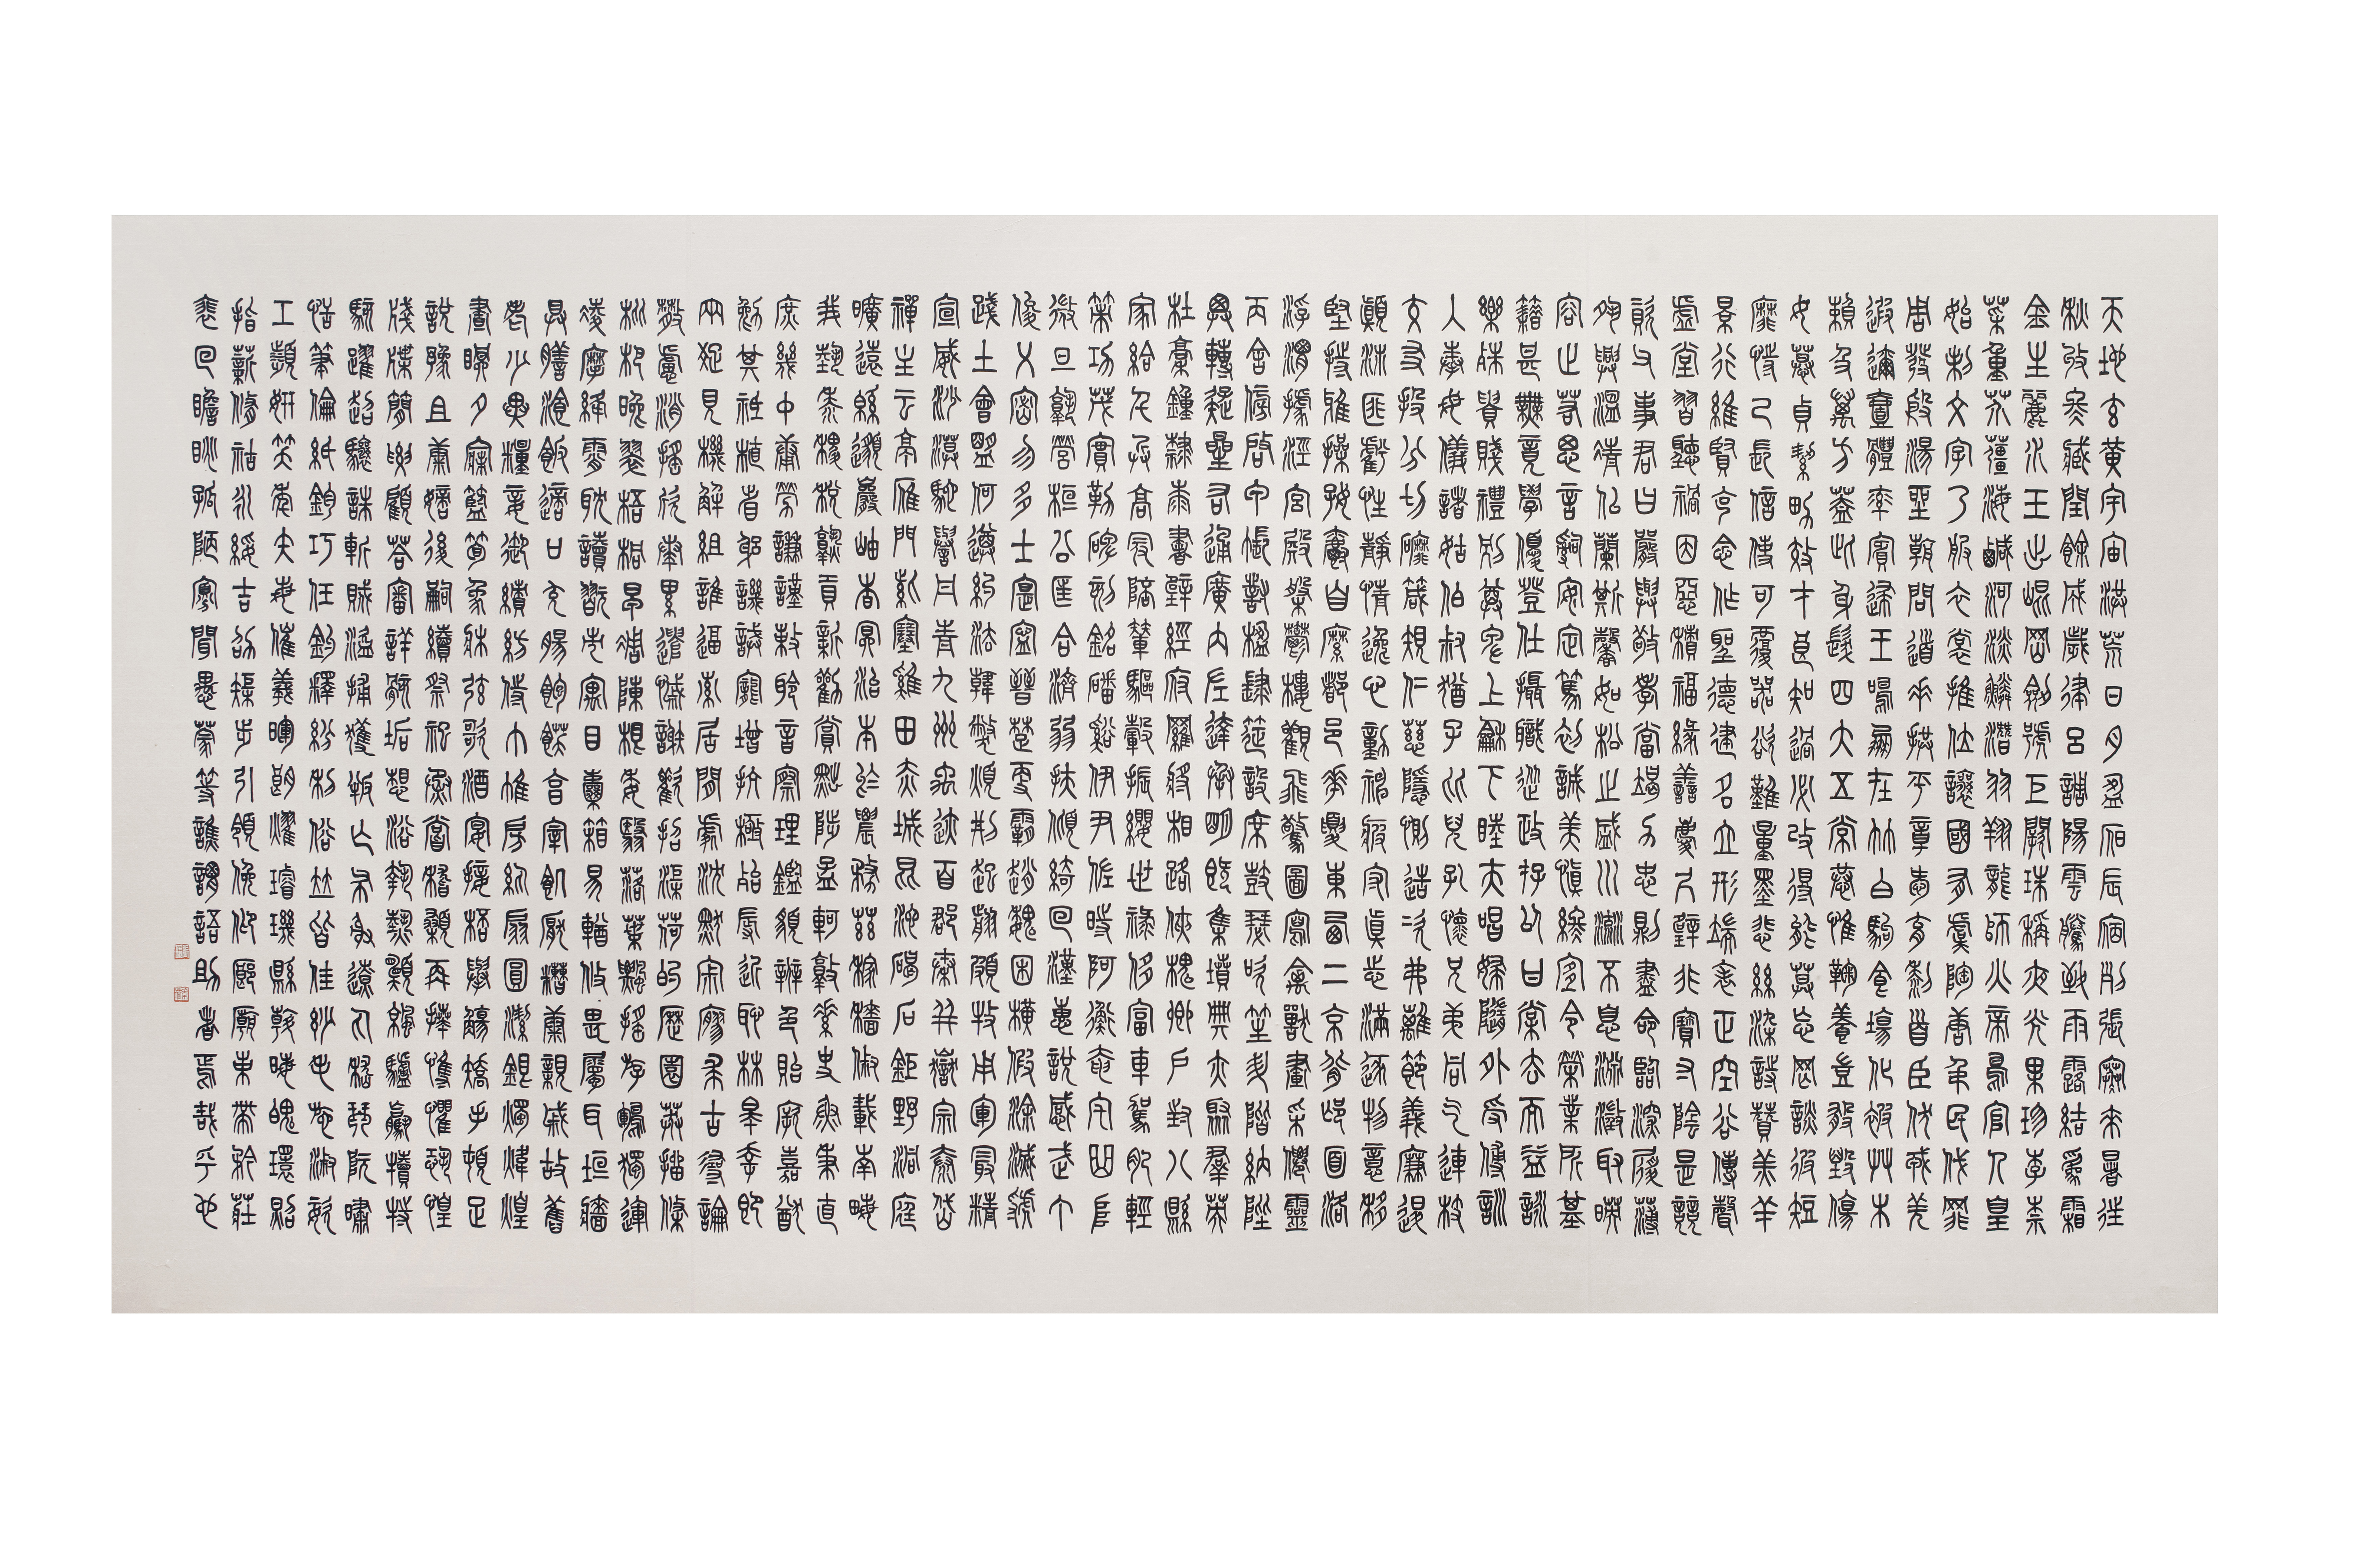 天地玄黃宇宙洪荒日月盈昃辰宿列張寒來暑往
秋收冬藏閏餘成歲律呂調陽雲騰致雨露結為霜
金生麗水玉出崑岡劍號巨闕珠稱夜光果珍李柰
菜重芥薑海鹹河淡鱗潛羽翔龍師火帝鳥官人皇
始制文字乃服衣裳推位讓國有虞陶唐弔民伐罪
周發殷湯坐朝問道垂拱平章愛育黎首臣伏戎羌
遐邇壹體率賓歸王鳴鳳在竹白駒食場化被草木
賴及萬方蓋此身髮四大五常恭惟鞠養豈敢毀傷
女慕貞絜男效才良知過必改得能莫忘罔談彼短
靡恃己長信使可覆器欲難量墨悲絲染詩贊羔羊
景行維賢克念作聖德建名立形端表正空谷傳聲
虛堂習聽禍因惡積福緣善慶尺璧非寶寸陰是競
資父事君曰嚴與敬孝當竭力忠則盡命臨深履薄
夙興溫凊似蘭斯馨如松之盛川流不息淵澄取映
容止若思言辭安定篤初誠美慎終宜令榮業所基
籍甚無竟學優登仕攝職從政存以甘棠去而益詠
樂殊貴賤禮別尊卑上和下睦夫唱婦隨外受傅訓
入奉母儀諸姑伯叔猶子比兒孔懷兄弟同氣連枝
交友投分切磨箴規仁慈隱惻造次弗離節義廉退
顛沛匪虧性靜情逸心動神疲守真志滿逐物意移
堅持雅操好爵自縻都邑華夏東西二京背邙面洛
浮渭據涇宮殿盤鬱樓觀飛驚圖寫禽獸畫采僊靈
丙舍傍啟甲帳對楹肆筵設席鼓瑟吹笙升階納陛
弁轉疑星右通廣內左達承明既集墳典亦聚群英
杜稾鍾隸漆書壁經府羅將相路俠槐卿戶封八縣
家給千兵高冠陪輦驅轂振纓世祿侈富車駕肥輕
策功茂實勒碑刻銘磻谿伊尹佐時阿衡奄宅曲阜
微旦孰營桓公匡合濟弱扶傾綺回漢惠說感武丁
俊乂密勿多士寔寧晉楚更霸趙魏困橫假途滅虢
踐土會盟何遵約法韓弊煩刑起翦頗牧用軍最精
宣威沙漠馳譽丹青九州禹跡百郡秦并嶽宗泰岱
禪主云亭雁門紫塞雞田赤城昆池碣石鉅野洞庭
曠遠緜邈巖岫杳冥治本於農務茲稼穡俶載南畝
我藝黍稷稅熟貢新勸賞黜陟孟軻敦素史魚秉直
庶幾中庸勞謙謹敕聆音察理鑑貌辨色貽厥嘉猷
勉其祗植省躬譏誡寵增抗極殆辱近恥林皋幸即
兩疏見機解組誰逼索居閒處沈默寂寥求古尋論
散慮消搖欣奏累遣慼謝歡招渠荷的歷園莽抽條
枇杷晚翠梧桐早凋陳根委翳落葉飄搖游鵾獨運
凌摩絳霄耽讀翫市寓目囊箱易輶攸畏屬耳垣牆
具膳飡飯適口充腸飽飫亨宰飢厭糟糠親戚故舊
老少異糧妾御績紡侍巾帷房紈扇圓潔銀燭煒煌
晝瞑夕寐籃筍象牀弦歌酒宴接桮舉觴矯手頓足
說豫且康嫡後嗣續祭祀烝嘗稽顙再拜悚懼恐惶
牋牒簡要顧答審詳骸垢想浴執熱願涼驢騾犢特
駭躍超驤誅斬賊盜捕獲叛亡布射遼丸嵇琴阮嘯
恬筆倫紙鈞巧任釣釋紛利俗並皆佳妙毛施淑姿
工顰妍笑年矢每催羲暉朗耀璿璣縣斡晦魄環照
指薪脩祜永綏吉劭矩步引領俛仰廊廟束帶矜莊
裴回瞻眺孤陋寡聞愚蒙等譙謂語助者焉哉乎也